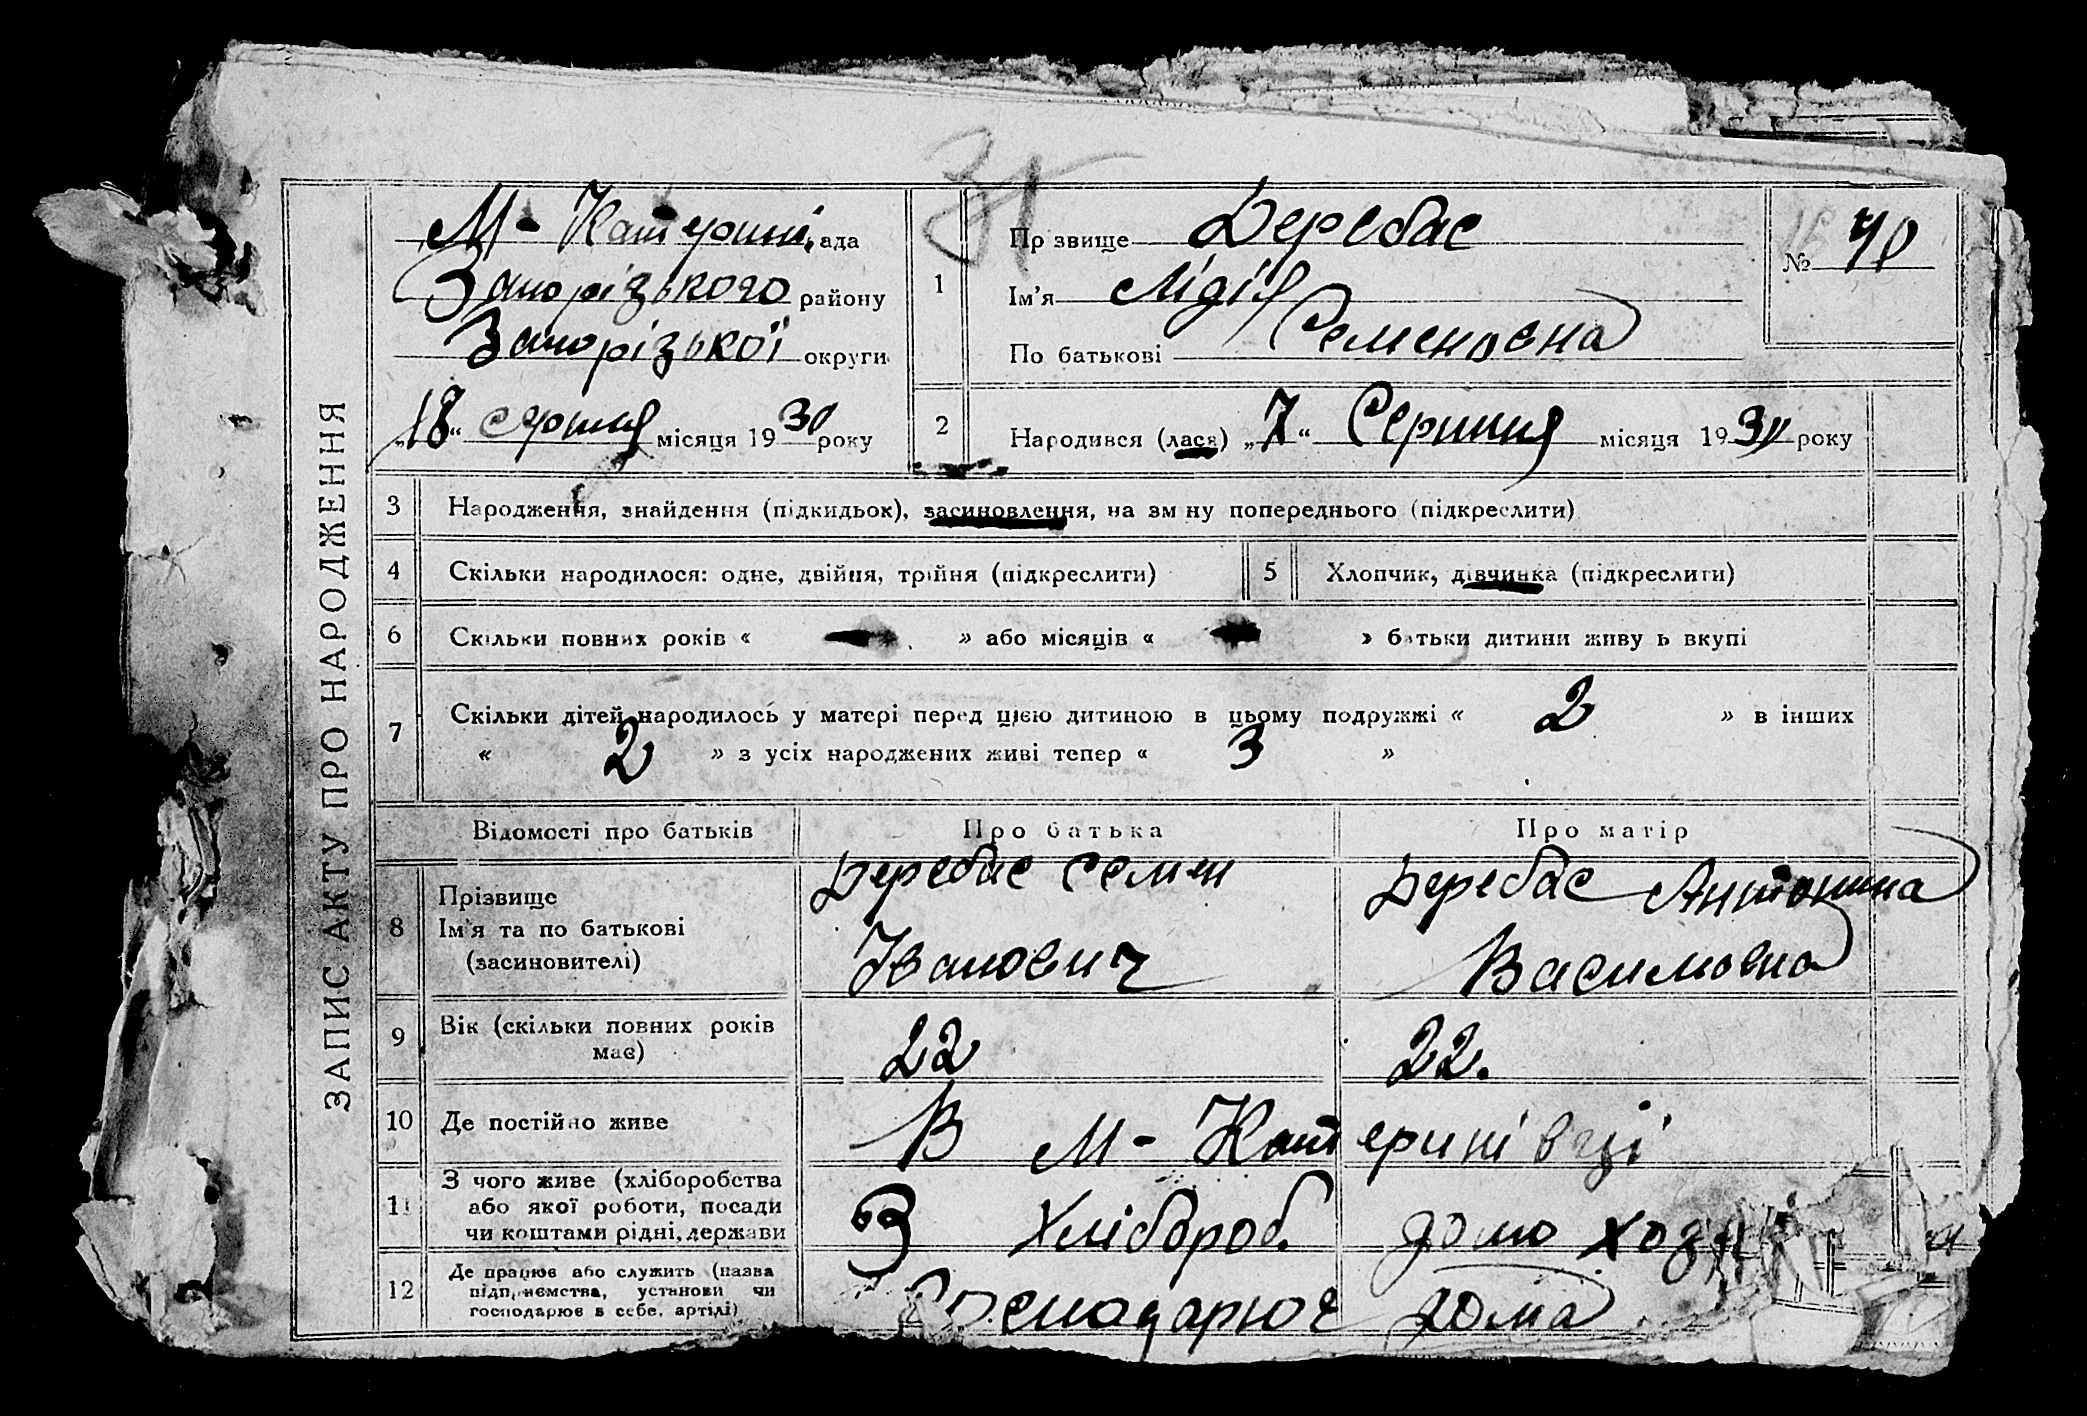 ЗАПИС АКТУ ПРО НАРОДЖЕННЯ
М- Катерині ада
Запорізького району
Запорізької округи
„18“ серпня місяця 1930 року
1
Пр звище Деребас
Ім'я Лідія
По батькові Семеновна
№ 40
2
Народився (лася) „7“ Серпння місяця 1930 року
3 Народження, знайдення (підкидьок), засиновлення, на зм ну попереднього (підкреслити)
4 Скільки народилося: одне, двійня, трійня (підкреслити)
5 Хлопчик, дівчинка (підкреслити)
6 Скільки повних років « — » або місяців « — » батьки дитини живу ь вкупі
7 Скільки дітей народилось у матері перед цією дитиною в цьому подружжі « 2 » в інших
« 2 » з усіх народжених живі тепер « 3 »
Відомості про батьків Про батька Про матір
8 Прізвище
Ім'я та по батькові
(засиновителі)
Деребас Семен
Іванович
Деребас Антонина
Василовна
9 Вік (скільки повних років
має)
22
22.
10 Де постійно живе
В М- Катеринівці
11 З чого живе (хліборобства
або якої роботи, посади
чи коштами рідні, держави
З Хлібороб.
домо ход
12 Де працює або служить (назва
підприємства, установи чи
господарює в себе, артілі)
Господарює
дома